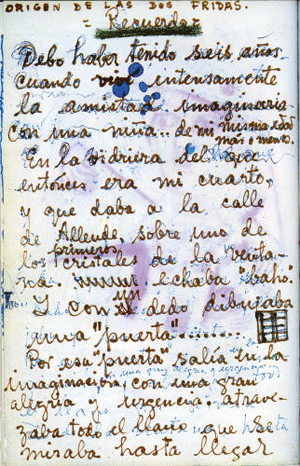 ORIGEN DE LAS DOS FRIDAS.
- Recuerdo -
Debo haber tenido seis años
cuando viví intensamente
la amistad imaginaria
con una niña.. de mi misma edad
más o menos.
En la vidriera del que
entónces era mi cuarto,
y que daba a la calle
de Allende, sobre uno de
los primeros cristales de la venta-
na. echaba "baho".
Y con un dedo dibujaba
una "puerta"........
Por esa "puerta" salía en la
imaginación, con una gran
alegría y urgencia. atrave-
zaba todo el llano que se
miraba hasta llegar